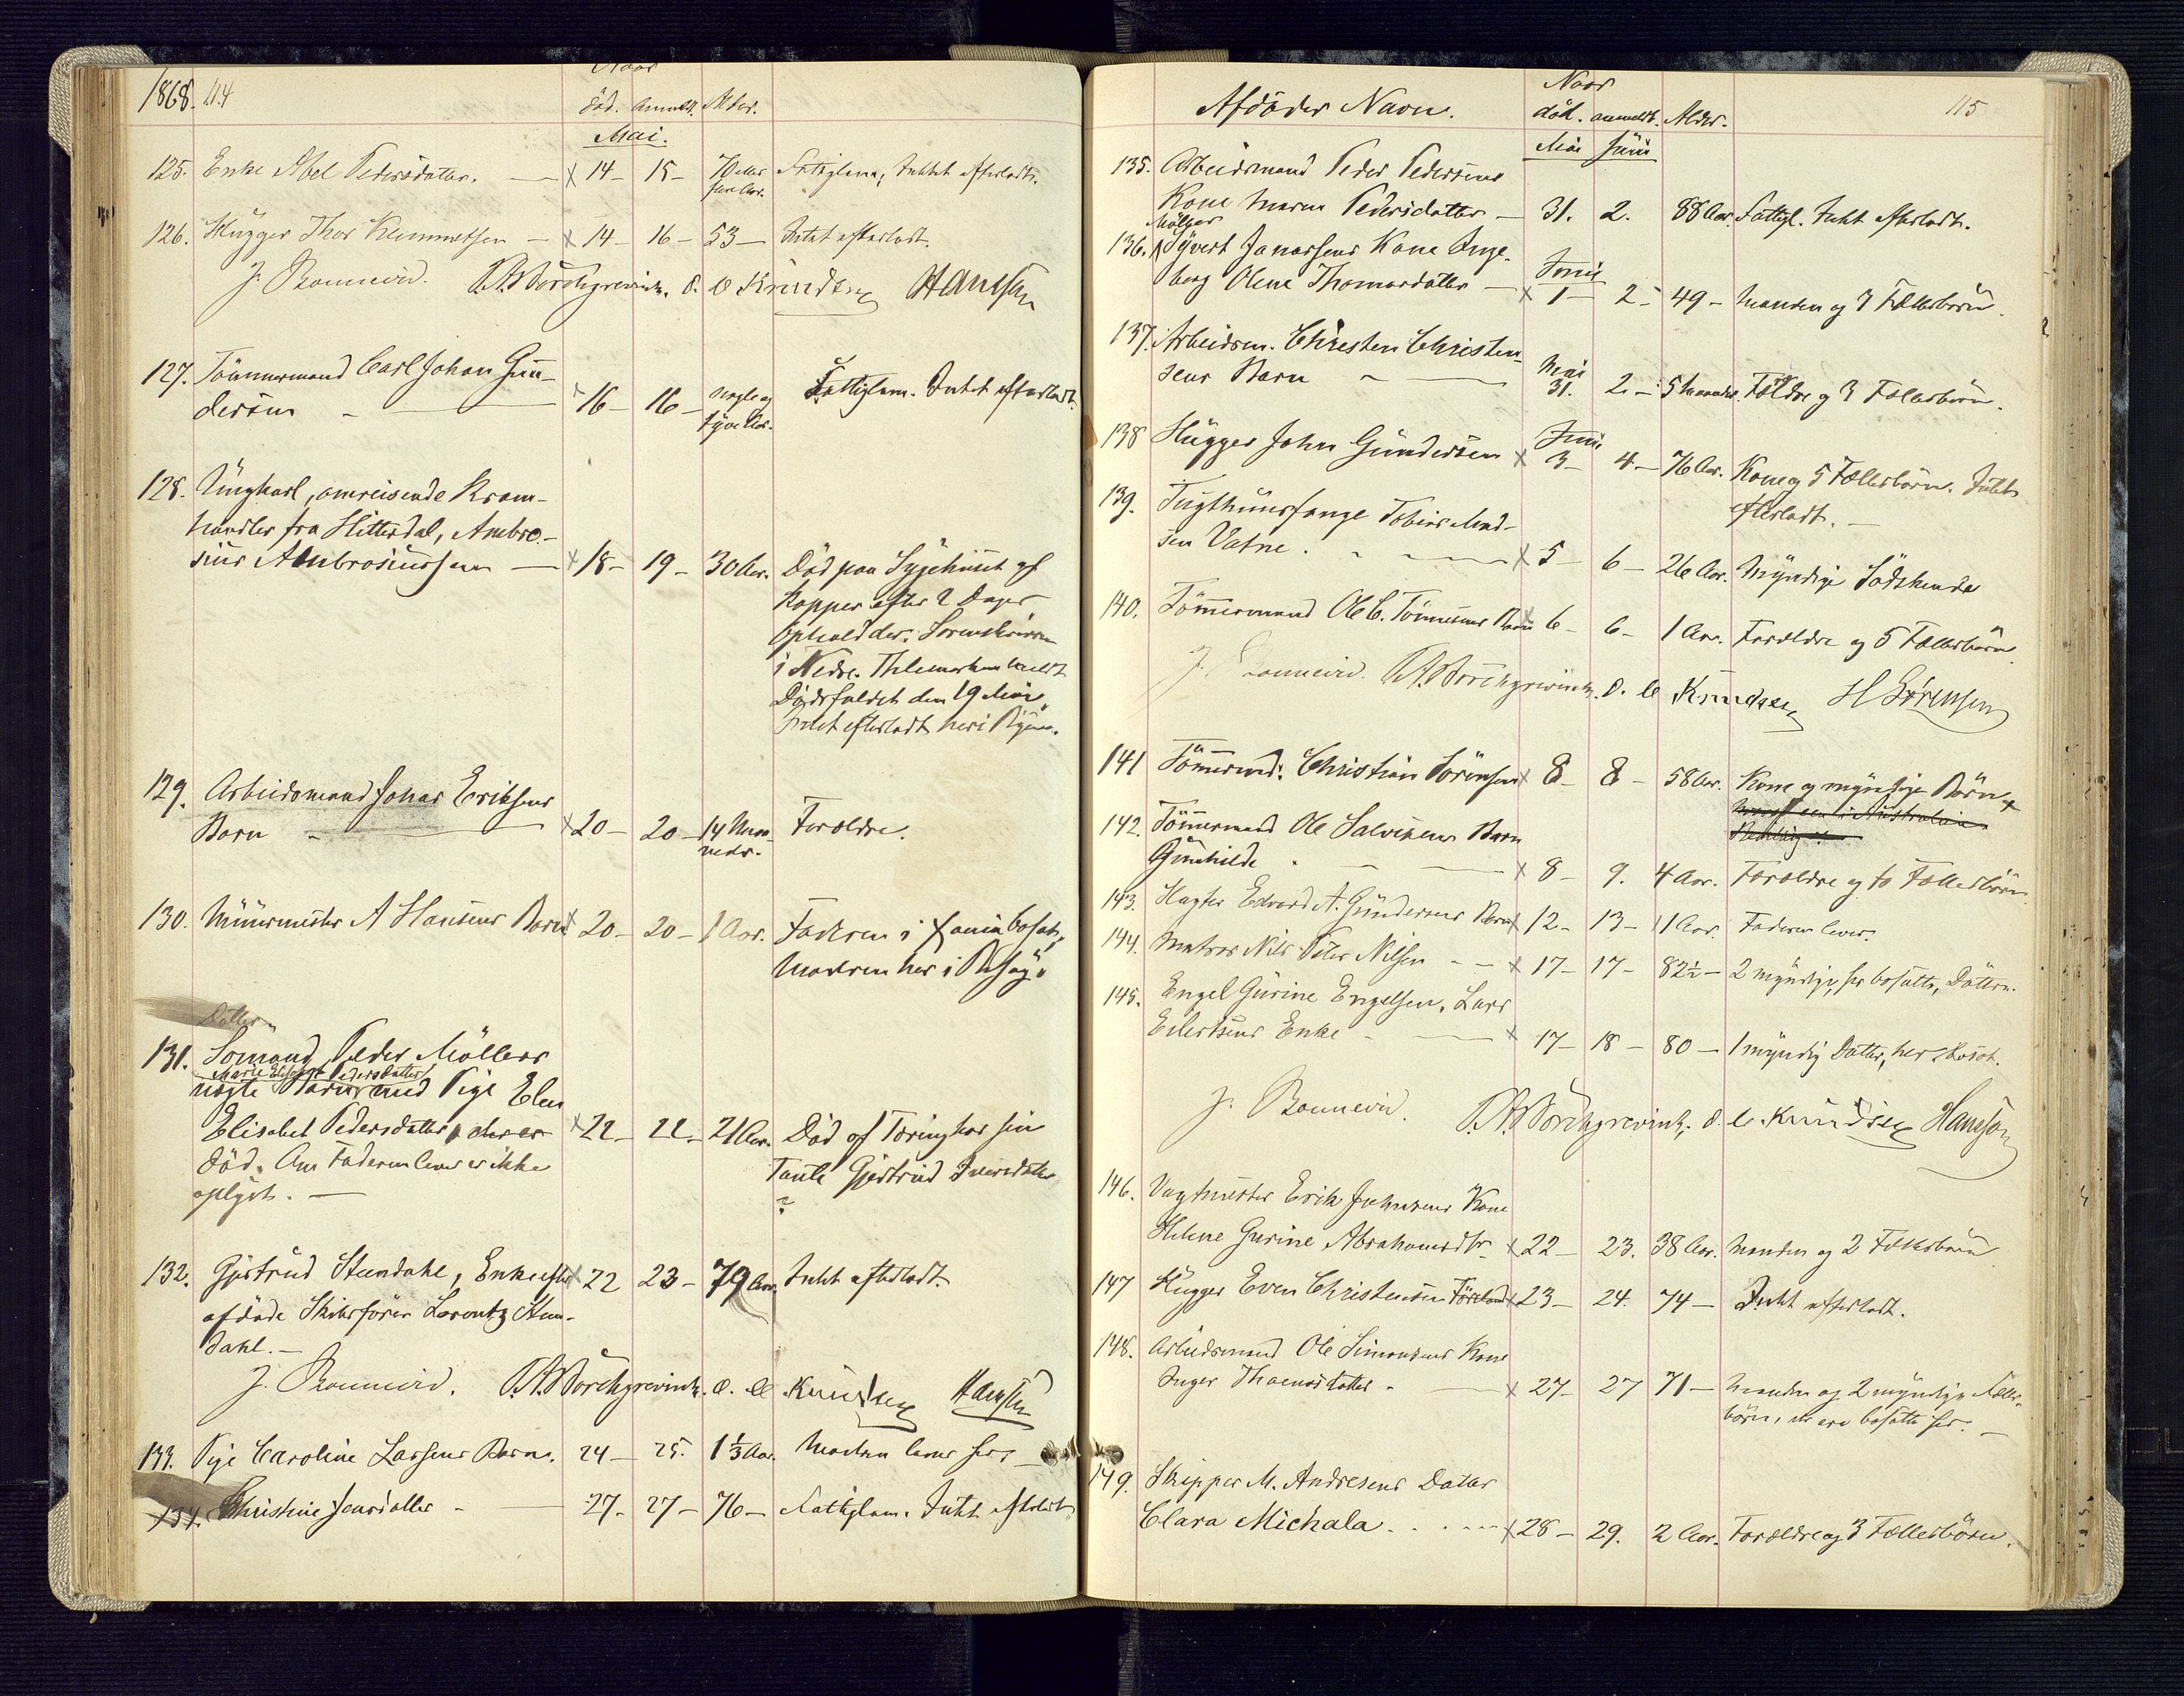 1868. 114
Naar
död. Anmeldt. Alder.
Mai.
125. Enke Abel Pedersdatter. — x 14 — 15 — 70 eller
flere Aar. Fattiglem, Intet efterladt.
126. Hugger Thor Klemmetsen — x 14 — 16 — 53 — Intet efterladt.
J. Bonnevie. Borchgrevink. O. C. Knudsen Hansson
127. Tömmermand Carl Johan Gun-
dersen — x 16 — 16 — nogle og
tyve Aar. Fattiglem. Intet efterladt.
128. Ungkarl, omreisende Kram-
handler fra Hitterdal, Ambro-
sius Ambrosiussen — x 18 — 19 — 30 Aar. Död paa Sygehuset af
Kopper efter 2 Dages
Ophold der. Sorenskriveren
i Nedre Thelemarken meldt
Dödsfaldet den 19 Mai.
Intet efterladt her i Byen.
129. Arbeidsmand Johas Eriksens
Barn — x 20 — 20 — 14 Maa-
neder. Forældre.
130. Muurmester A Hansens Barn x 20 — 20 — 1 Aar. Faderen i bosat,
Moderen her i
Datter
131. Sömand Peder Möllers
Marie Elisabeth Pedersdatter
uægte Barn med Pige Elen
Elisabet Pedersdatter, der er x 22 — 22. 21 Aar. Död af Tæring hos sin
död. Om Faderen lever er ikke Tante Gjertrud Iversdatter
oplyst. — ?
132. Gjertrud Stendahl, Enke efter x 22 23 — 79 Aar. Intet efterladt.
afdöde Skibsförer Lorentz Sten-
dahl. —
J. Bonnevie. Borchgrevink. O. C. Knudsen Hansson
133. Pige Caroline Larsens Barn. 24 — 25. 1 1/3 Aar. Moderen lever her.
134. Christine Jensdatter — 27 — 27 — 76 — Fattiglem. Intet efterladt.
115
Afdödes Navn. Naar
död. anmeldt. Alder.
Mai Juni
135. Arbeidsmand Peder Pedersens
Kone Maren Pedersdatter — 31. 2. 88 Aar. Fattigl. Intet efterladt.
136. Sÿvert Jonassens Kone Inge- Juni
borg Olene Thomasdatter — x 1 — 2 — 49 — Manden og 3 Fællesbörn.
137. Arbeidsm. Christen Christen- Mai
sens Barn — 31. 2. — 5 Maaneder. Forældre og 3 Fællesbörn.
138 Hugger John Gundersen Juni
x 3 — 4 — 76 Aar. Kone og 5 Fællesbörn. Intet
efterladt. —
139. Tugthuusfange Tobias Mad-
sen Vatne. — x 5 — 6 — 26 Aar. Myndige Södskende
140. Tömmermand Ole C. Tönnesens Barn x 6 — 6 — 1 Aar. Forældre og 5 Fællesbörn.
J. Bonnevie. Borchgrevink. O. C. Knudsen H Sörensen
141 Tömmermd. Christian Sörensen x 8 — 8 — 58 Aar. Kone og myndige Börn
142. Tömmermand Ole Salvesens Barn
Gunhilde — x 8 — 9. 4 Aar. Forældre og to Fællesbörn.
143. Edvard A. Gundersens Barn x 12 — 13 — 11 Aar. Faderen lever.
144. Matros Nils Peter Nilsen — x 17 — 17 — 82 1/2 — 2 myndige, her bosatte, Döttre.
145. Engel Gurine Engelsen, Lars
Eilertsens Enke — x 17 — 18 — 80 — 1 myndig Datter, her bosat.
J. Bonnevie. Borchgrevink. O. C. Knudsen Hansson
146. Vagtmester Erik Johnsens Kone
Helene Gurine Abrahamsdtr x 22 — 23. 38 Aar. Manden og 2 Fællesbörn
147 Hugger Even Christensen x 23 — 24. 74 — Intet efterladt.
148. Arbeidsmand Ole Simonsens Kone
Inger Thomasdatter — x 27 — 27 71 — Manden og 2 myndige Fælles-
börn, der ere bosatte her. —
149. Skipper M. Andresens Datter
Clara Michala. . . — x 28 — 29. 2 Aar. Forældre og 3 Fællesbörn.